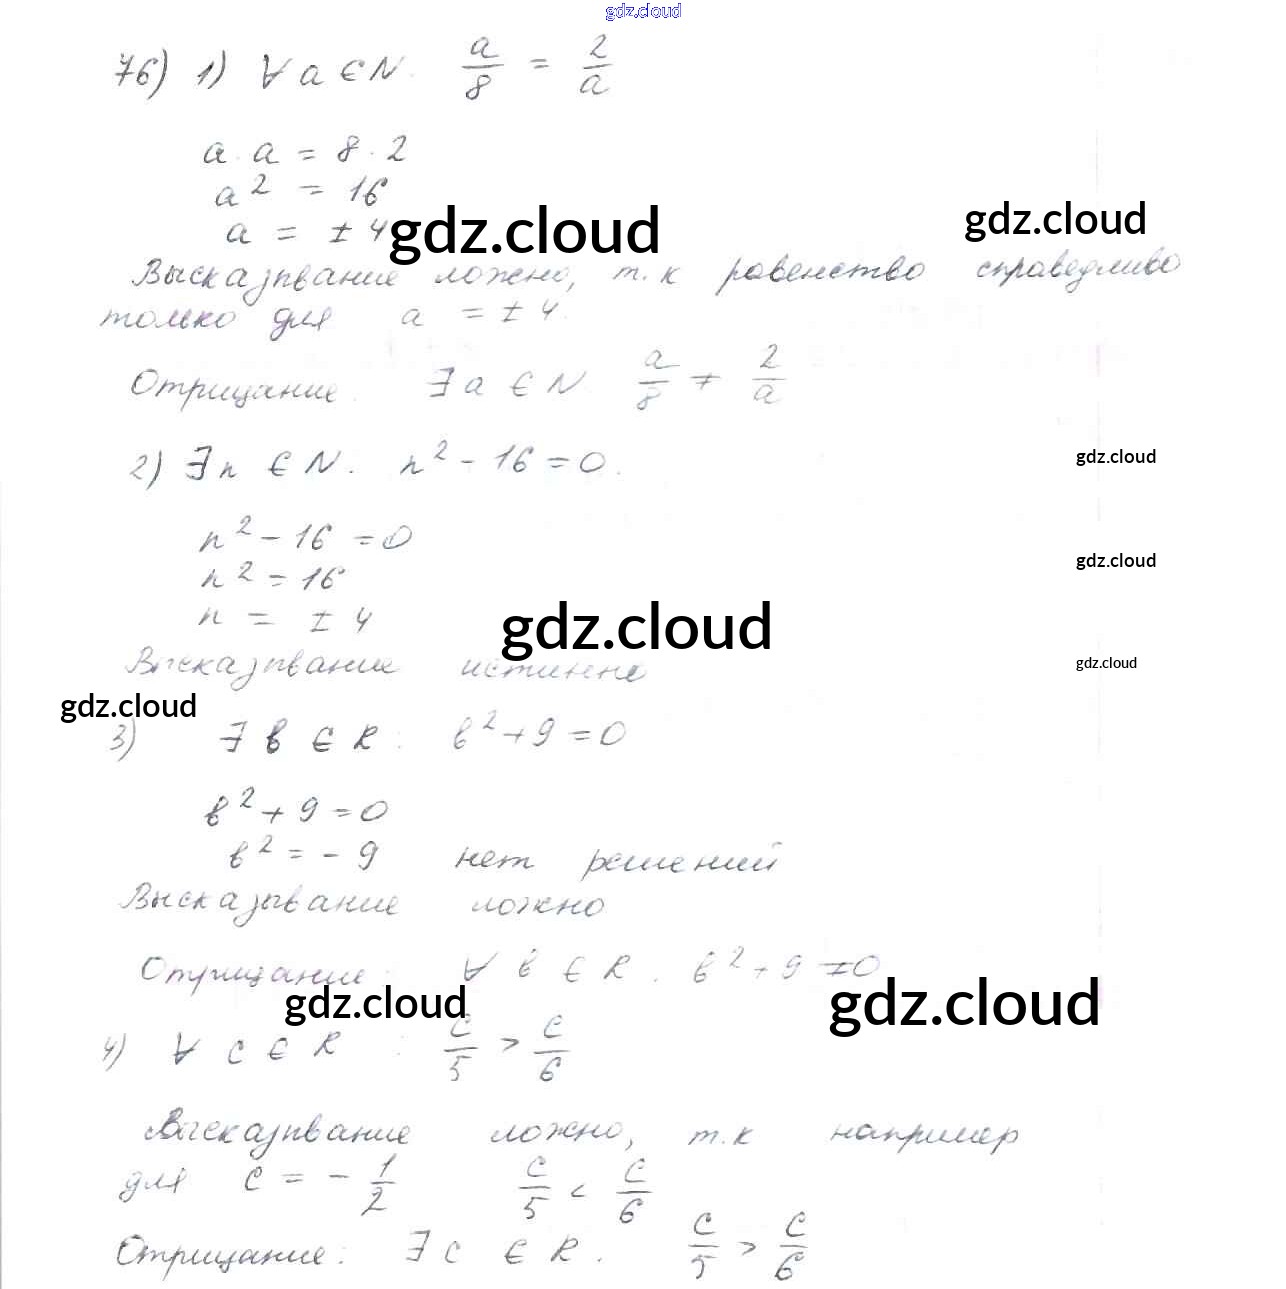 gdz.cloud
76) 1) ∀ a ∈ N. a/8 = 2/a
a · a = 8 · 2
a² = 16
a = ± 4
gdz.cloud
gdz.cloud
Высказывание ложно, т.к равенство справедливо
только для a = ± 4.
Отрицание. ∃ a ∈ N. a/8 ≠ 2/a
2) ∃ n ∈ N: n² - 16 = 0.
gdz.cloud
n² - 16 = 0
gdz.cloud
n² = 16
n = ± 4
gdz.cloud
Высказывание истинно
gdz.cloud
gdz.cloud
3) ∃ b ∈ R: b² + 9 = 0
b² + 9 = 0
b² = - 9 нет решений
Высказывание ложно
Отрицание: ∀ b ∈ R. b² + 9 ≠ 0
gdz.cloud
gdz.cloud
4) ∀ c ∈ R : c/5 > c/6
Высказывание ложно, т.к например
для c = - 1/2 c/5 < c/6
Отрицание: ∃ c ∈ R. c/5 > c/6